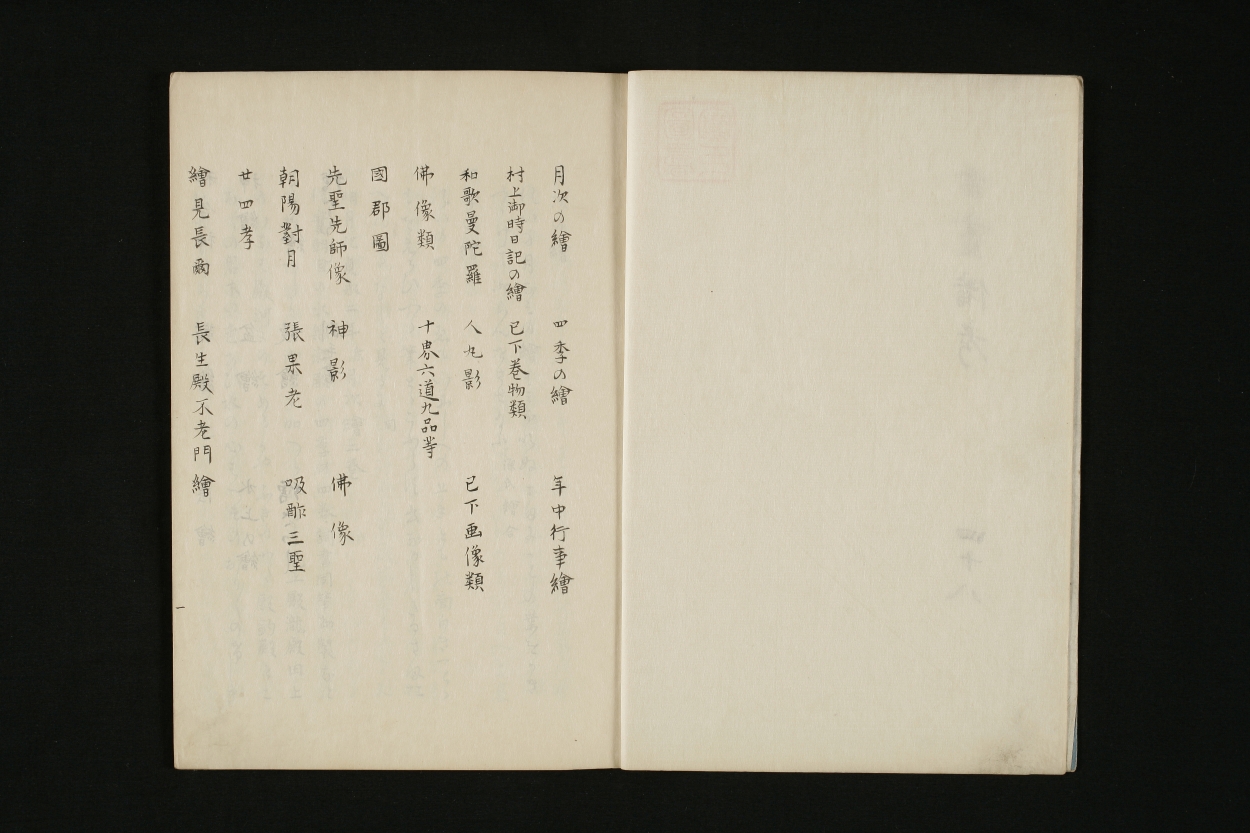 月次の繪 四季の繪 年中行事繪
村上御時日記の繪 已下巻物類
和歌曼陀羅 人丸影 已下画像類
佛像類 十界六道九品等
國郡圖
先聖先師像 神影 佛像
朝陽對月 張果老 吸酢三聖
廿四孝
繪見長 長生殿不老門繪
一